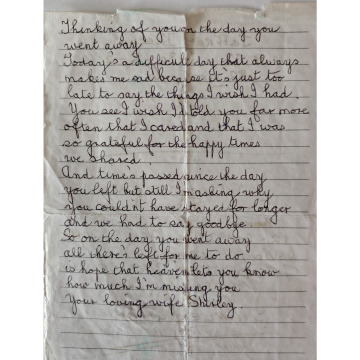 Thinking of you on the day you
went away
Today's a difficult day that always
makes me sad because it's just too
late to say the things I wish I had.
You see I wish I'd told you far more
often that I cared and that I was
so grateful for the happy times
we shared.
And time's passed since the day
you left but still I'm asking why
you couldn't have stayed for longer
and we had to say goodbye
So on the day you went away
all there's left for me to do
is hope that heaven lets you know
how much I'm missing you
Your loving wife Shirley.